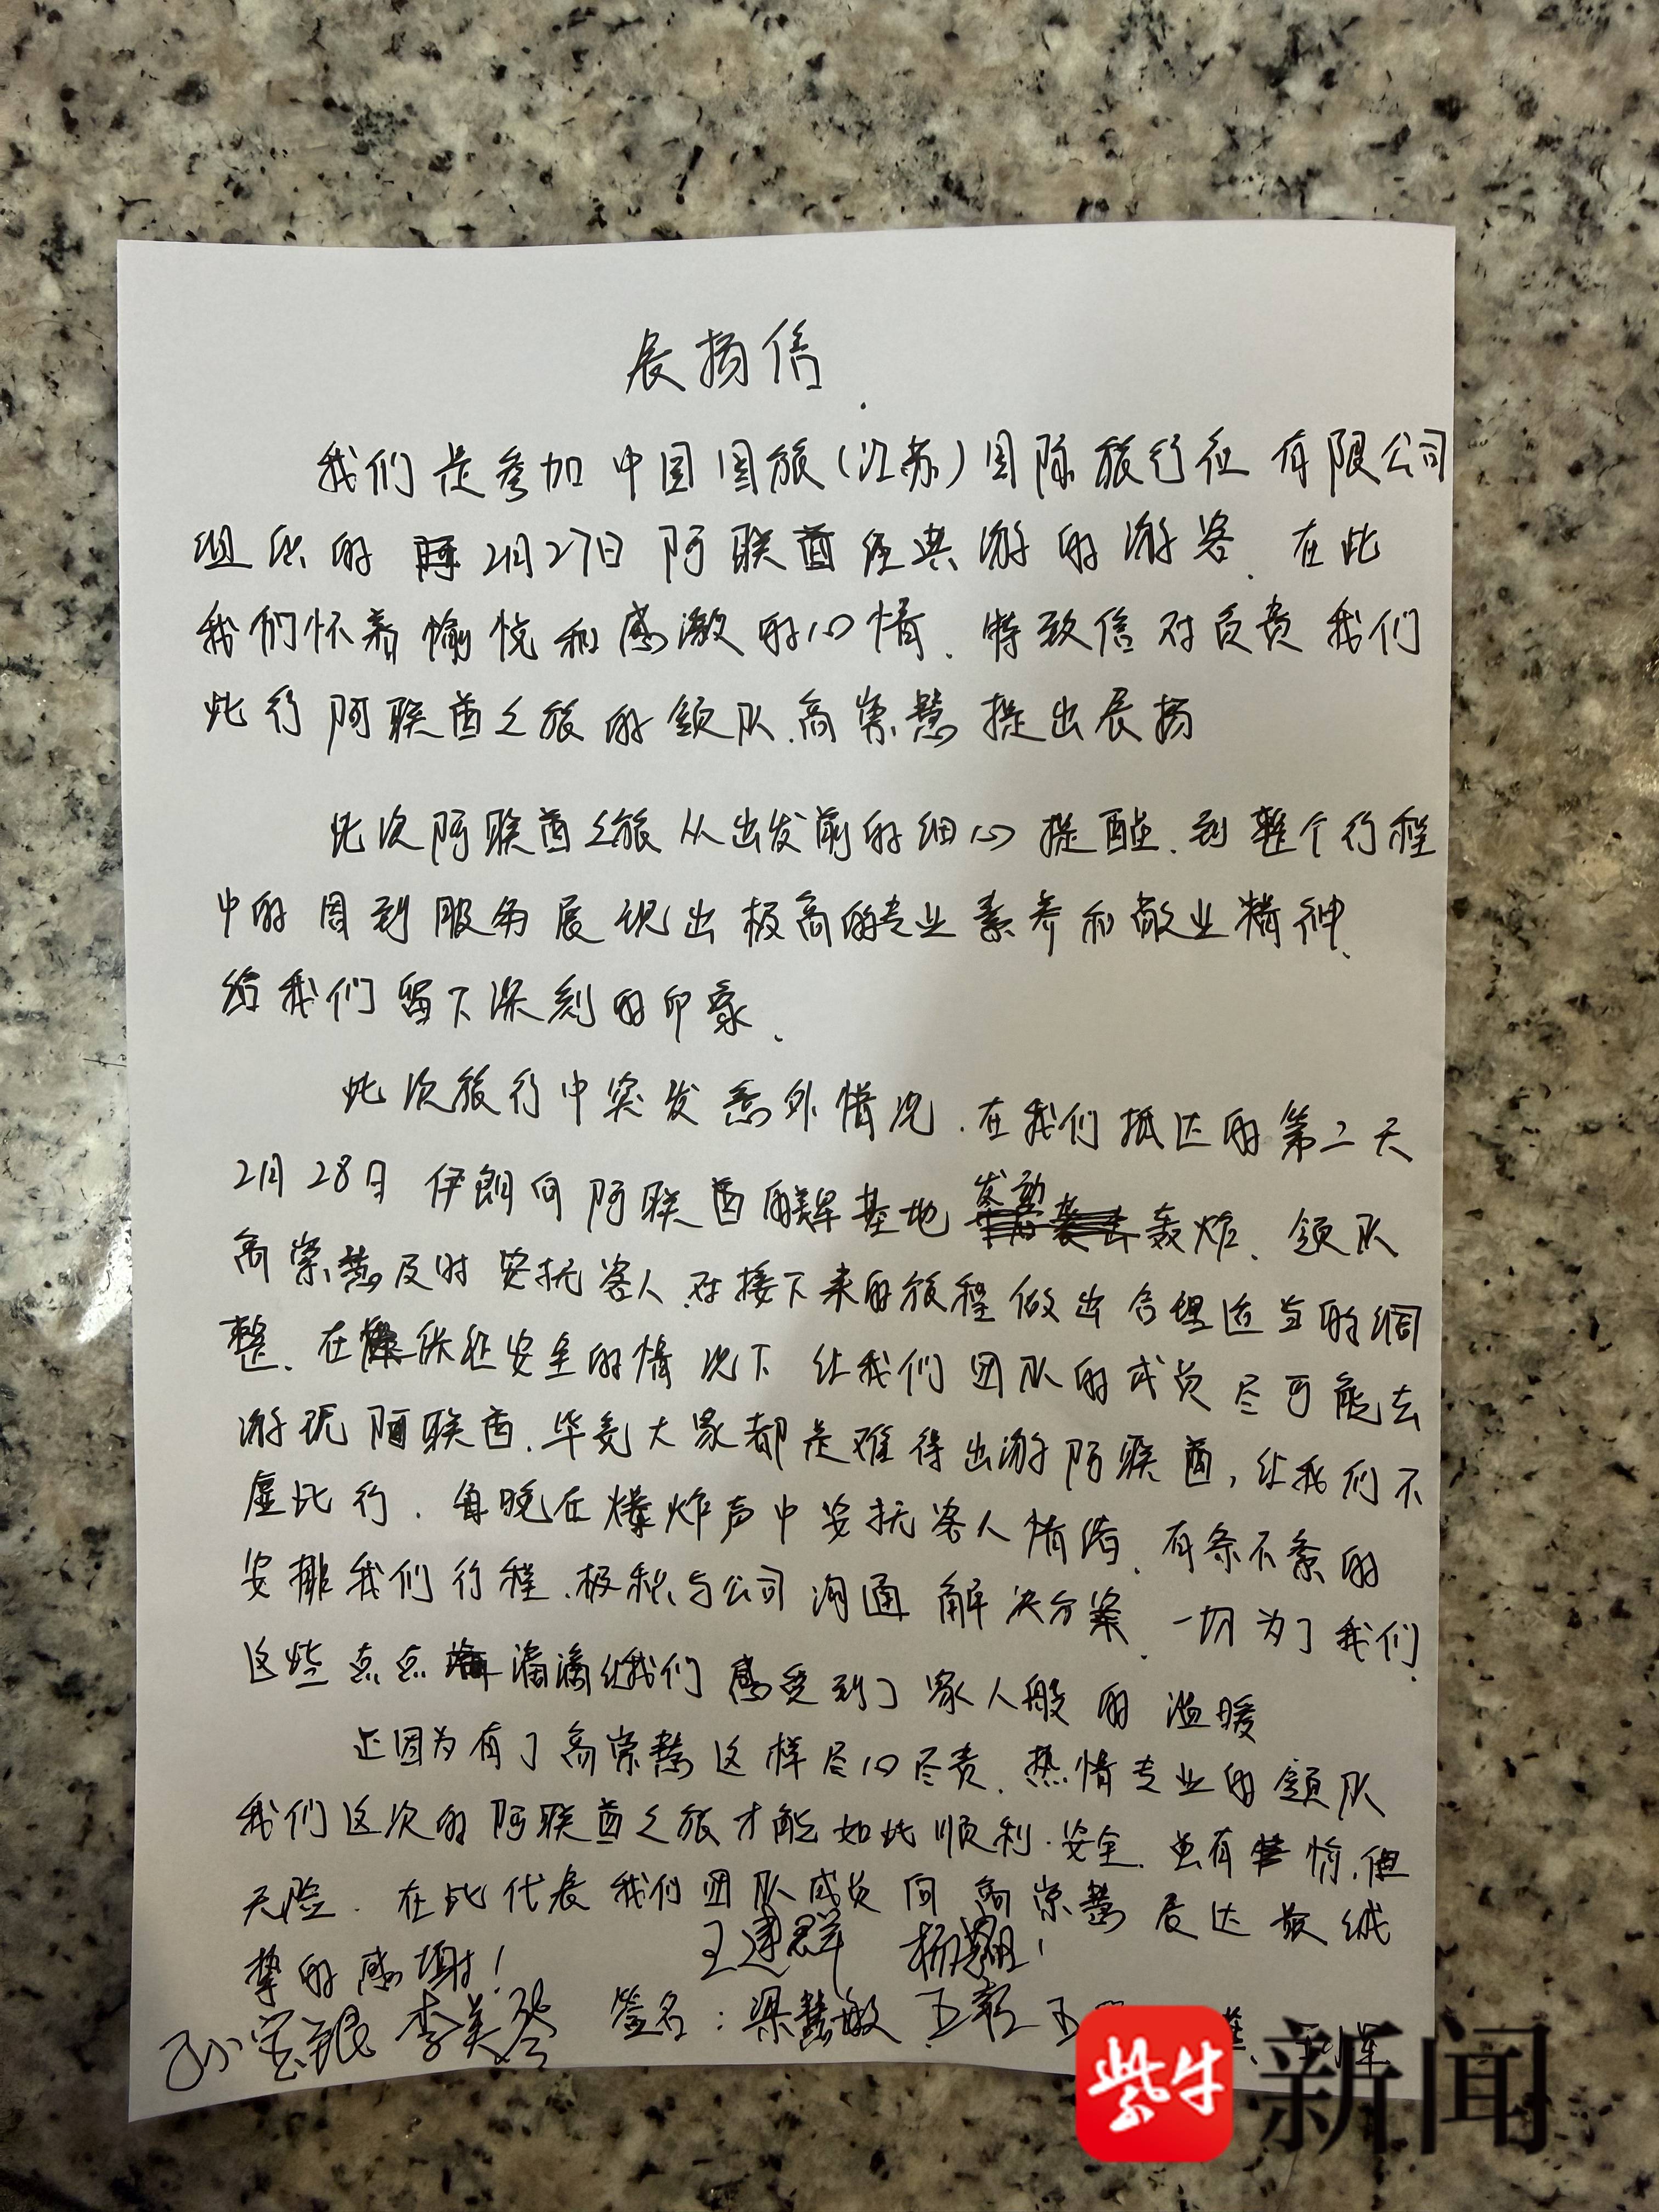 表扬信
我们是参加中国国旅(江苏)国际旅行社有限公司
组织的 2月27日阿联酋经典游的游客、在此
我们怀着愉悦和感激的心情、特致信对负责我们
此行阿联酋之旅的领队、高崇慧提出表扬
此次阿联酋之旅从出发前的细心提醒、到整个行程
中的周到服务展现出极高的专业素养和敬业精神、
给我们留下深刻的印象、
此次旅行中突发意外情况、在我们抵达的第二天
2月28日伊朗向阿联酋的美军基地发动轰炸、领队
高崇慧及时安抚客人、对接下来的旅程做出合理适当的调
整、在保证安全的情况下让我们团队的成员尽可能去
游玩阿联酋、毕竟大家都是难得出游阿联酋,让我们不
虚此行、每晚在爆炸声中安抚客人情绪、有条不紊的
安排我们行程、极积与公司沟通解决方案、一切为了我们、
这些点点滴滴让我们感受到了家人般的温暖
正因为有了高崇慧这样尽心尽责、热情专业的领队
我们这次的阿联酋之旅才能如此顺利、安全、虽有惊,但
无险、在此代表我们团队成员向高崇慧表达最诚
挚的感谢!
王建群 杨翱
孙宝银 李美琴 签名:梁慧敏
紫牛新闻